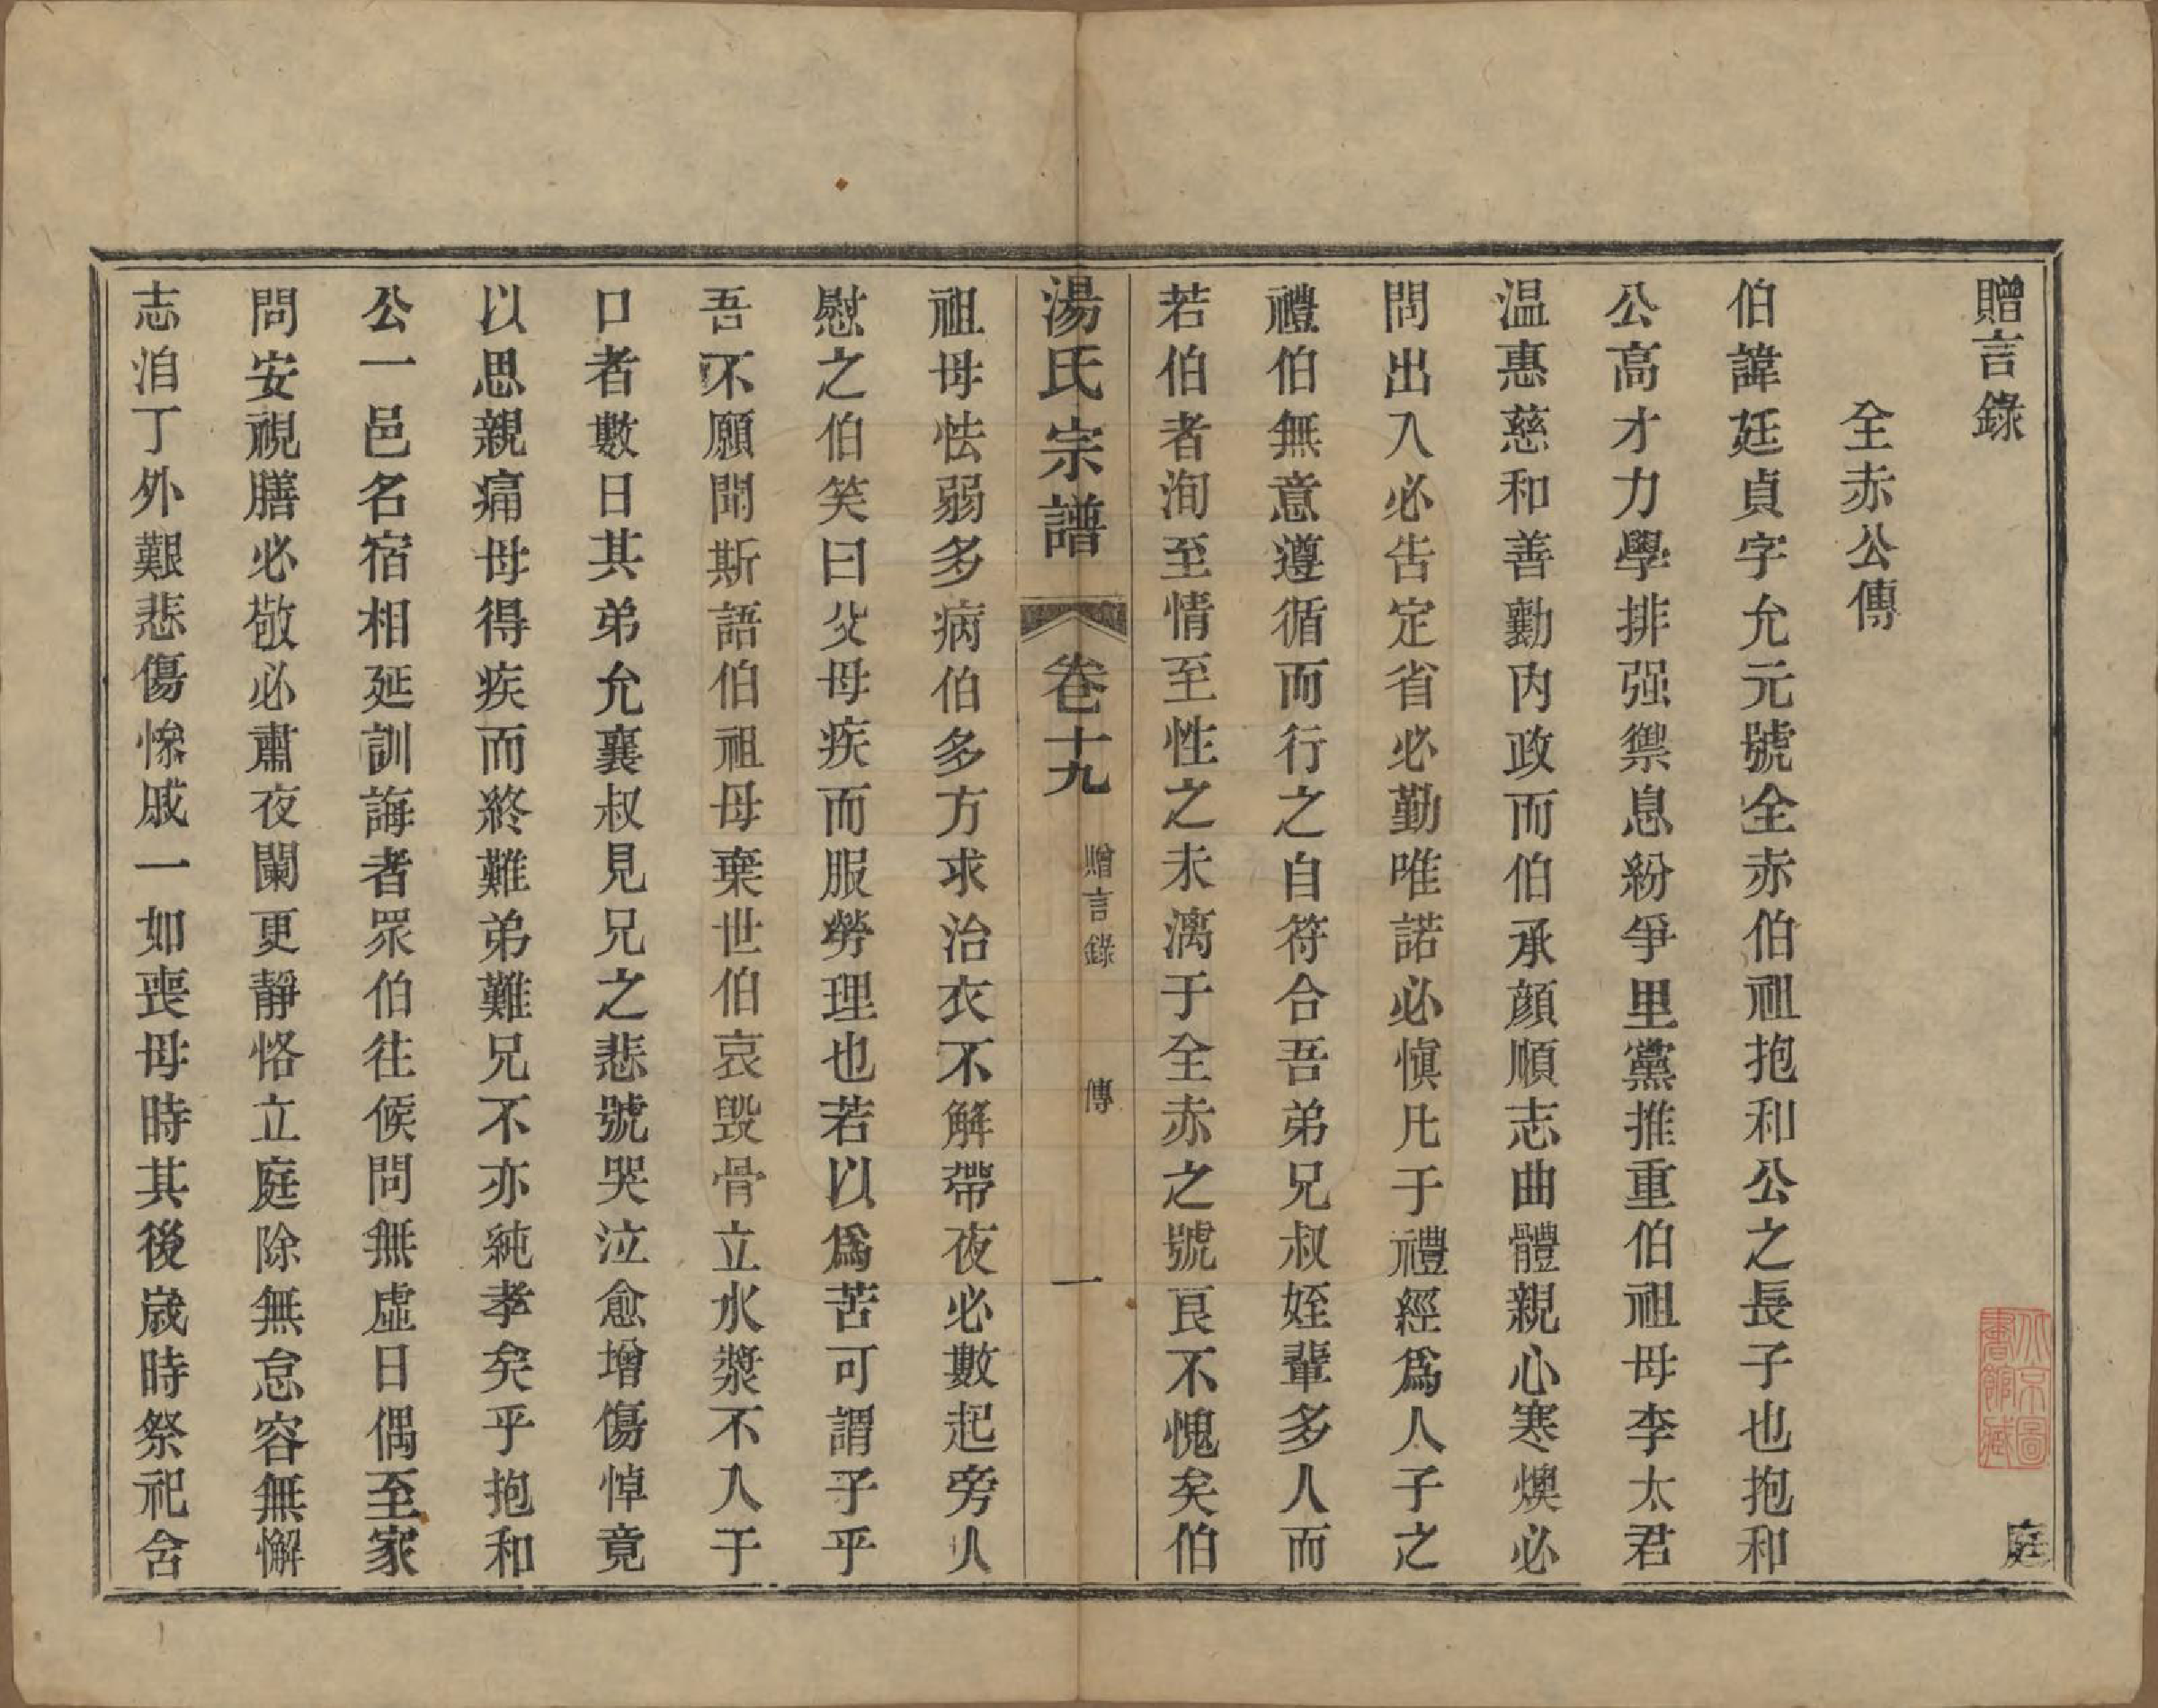 贈言錄
庭
全赤公傳
伯諱廷貞字允元號全赤伯祖抱和公之長子也抱和
公高才力學排强禦息紛爭里黨推重伯祖母李太君
温惠慈和善勷内政而伯承顔順志曲體親心寒燠必
問出入必告定省必勤唯諾必愼凡于禮經爲人子之
禮伯無意遵循而行之自符合吾弟兄叔姪輩多人而
若伯者洵至情至性之未漓于全赤之號良不愧矣伯
湯氏宗譜
卷十九
贈言錄
傳
一
祖母怯弱多病伯多方求治衣不解帶夜必數起旁人
慰之伯笑曰父母疾而服勞理也若以爲苦可謂子乎
吾不願聞斯語伯祖母棄世伯哀毁骨立水漿不入于
口者數日其弟允襄叔見兄之悲號哭泣愈增傷悼竟
以思親痛母得疾而終難弟難兄不亦純孝矣乎抱和
公一邑名宿相延訓誨者眾伯往候問無虛日偶至家
問安視膳必敬必肅夜闌更靜恪立庭除無怠容無懈
志洎丁外艱悲傷慘戚一如喪母時其後歲時祭祀含
北京圖
書館藏